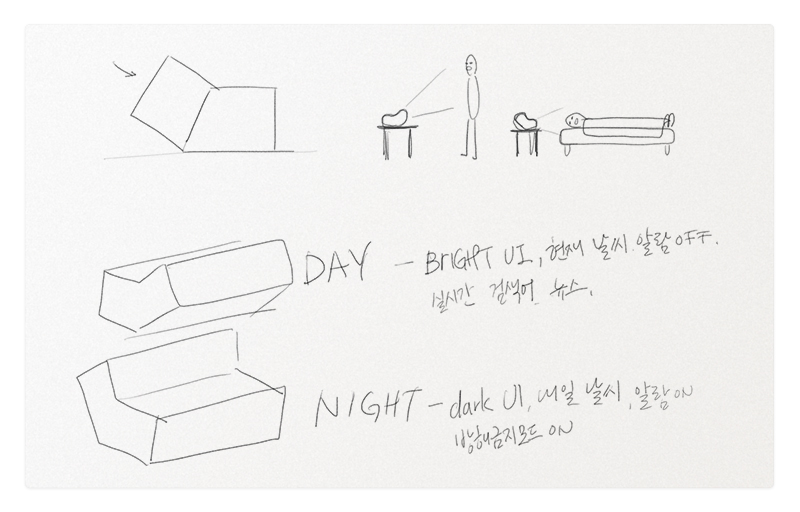 DAY - BRIGHT UI, 현재 날씨. 알람 OFF.
실시간 검색어. 뉴스.
NIGHT - dark UI, 내일 날씨, 알람 ON
방해금지모드 ON